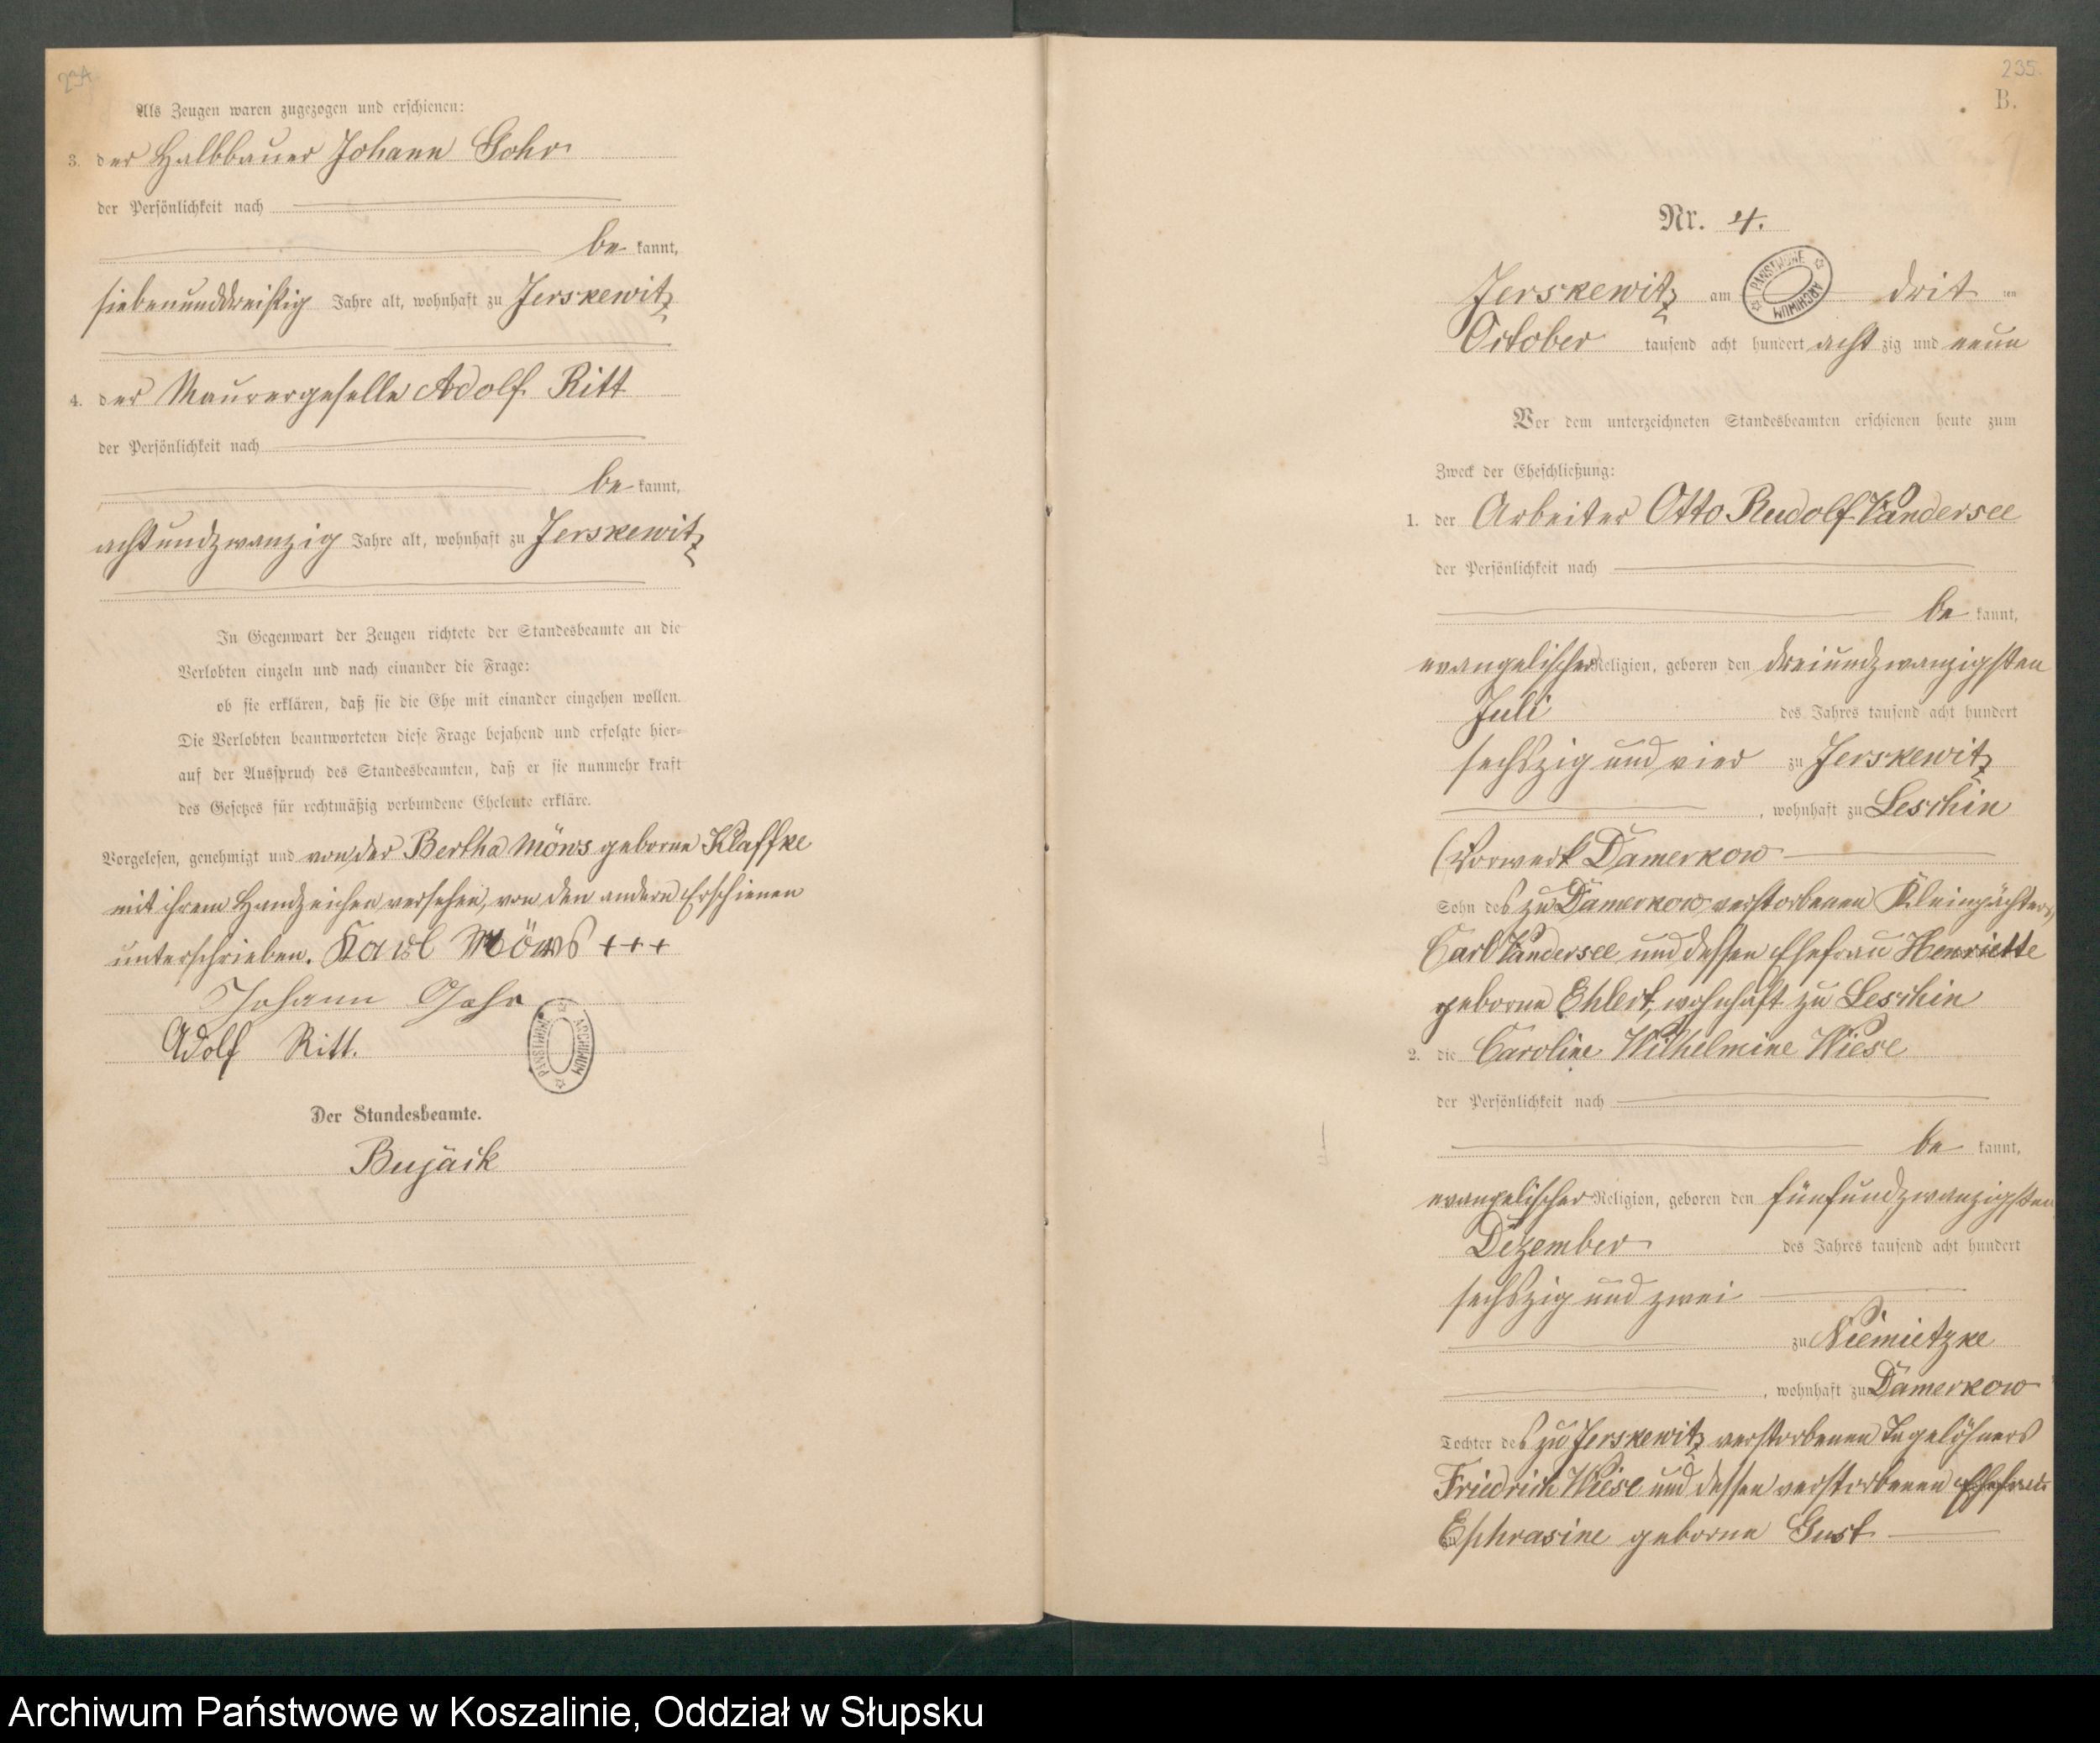 234
Als Zeugen waren zugezogen und erschienen:
3. der Halbbauer Johann Gohr
der Persönlichkeit nach
be kannt,
siebenunddreißig Jahre alt, wohnhaft zu Jerskewitz
4. der Maurergeselle Adolf Ritt
der Persönlichkeit nach
be kannt,
achtundzwanzig Jahre alt, wohnhaft zu Jerskewitz
In Gegenwart der Zeugen richtete der Standesbeamte an die
Verlobten einzeln und nach einander die Frage:
ob sie erklären, daß sie die Ehe mit einander eingehen wollen.
Die Verlobten beantworteten diese Frage bejahend und erfolgte hier-
auf der Ausspruch des Standesbeamten, daß er sie nunmehr kraft
des Gesetzes für rechtmäßig verbundene Eheleute erkläre.
Vorgelesen, genehmigt und von der Bertha Möws geborne Klaffke
mit ihrem Handzeichen versehen, von den andern Erschienen
unterschrieben. Karl Möws +++
Johann Gohr
Adolf Ritt.
PAŃSTWOWE ARCHIWUM
Der Standesbeamte.
Bujack
235.
B.
Nr. 4.
Jerskewitz am drit ten
PAŃSTWOWE ARCHIWUM
October tausend acht hundert acht zig und neun
Vor dem unterzeichneten Standesbeamten erschienen heute zum
Zweck der Eheschließung:
1. der Arbeiter Otto Rudolf Vandersee
der Persönlichkeit nach
be kannt,
evangelischer Religion, geboren den dreiundzwanzigsten
Juli des Jahres tausend acht hundert
sechszig und vier zu Jerskewitz
, wohnhaft zu Leschin
(Vorwerk Damerkow
Sohn des zu Damerkow verstorbenen Kleinpächters
Carl Vandersee und dessen Ehefrau Henriette
geborne Ehlert, wohnhaft zu Leschin
2. die Caroline Wilhelmine Wiese
der Persönlichkeit nach
be kannt,
evangelischer Religion, geboren den fünfundzwanzigsten
Dezember des Jahres tausend acht hundert
sechszig und zwei
zu Niemietzke
, wohnhaft zu Damerkow
Tochter des zu Jerskewitz verstorbenen Tagelöhners
Friedrich Wiese und dessen verstorbenen Ehefrau
Ephrasine geborne Gust
Archiwum Państwowe w Koszalinie, Oddział w Słupsku